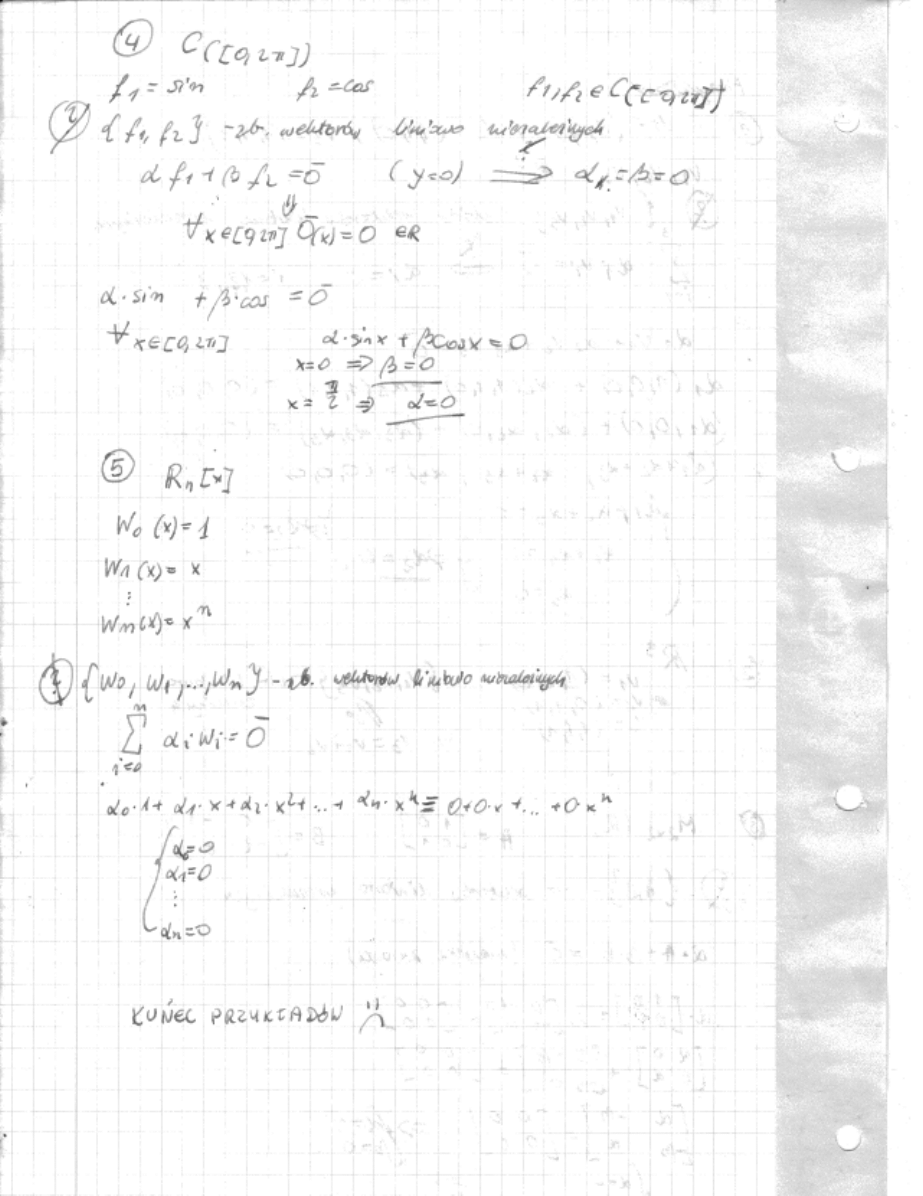 ④ C([0,2π])
f₁ = sin f₂ = cos f₁,f₂ ∈ C([0,2π])
{f₁, f₂} - zb. wektorów liniowo niezależnych
α f₁ + β f₂ = 0̄ (y=0) ⟹ α = β = 0
⇓
∀x∈[0,2π] 0̄(x) = 0 ∈ℝ
α·sin + β·cos = 0̄
∀x∈[0,2π] α·sinx + βcosx = 0
x=0 ⇒ β=0
x = π/2 ⇒ α=0
⑤ ℝₙ[x]
W₀ (x) = 1
W₁ (x) = x
⋮
Wₙ(x) = xⁿ
{W₀, W₁,...,Wₙ} - zb. wektorów liniowo niezależnych
n
∑ αᵢ Wᵢ = 0̄
i=0
α₀·1 + α₁·x + α₂·x² + ... + αₙ·xⁿ ≡ 0+0·x+... +0·xⁿ
{ α₀=0
α₁=0
⋮
αₙ=0
KUŃEC PRZYKŁADÓW